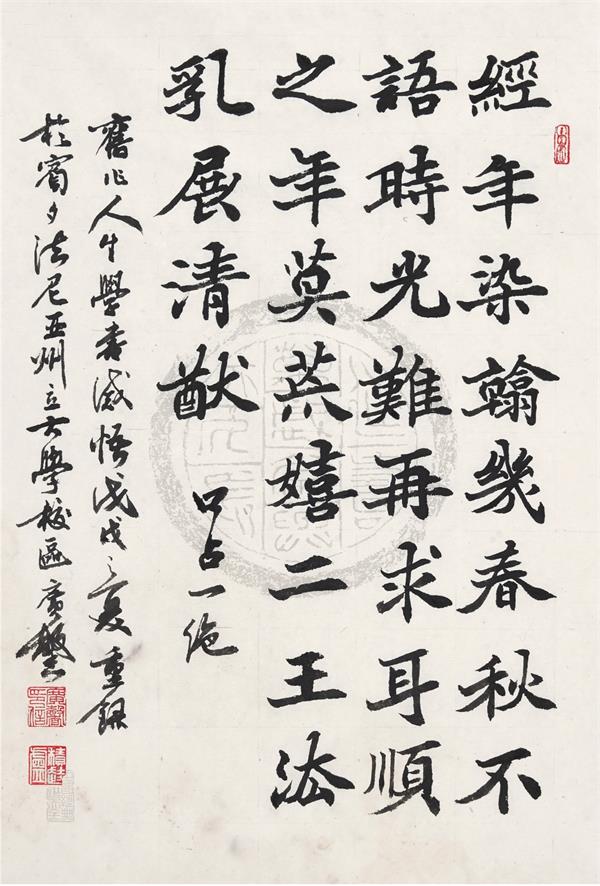 經年染翰幾春秋不
語時光難再求耳順
之年莫荒嬉二王法
乳展清猷 口占一絶
舊作人生學書感悟戊戌之夏重録
於賓夕法尼亞州立大學校區